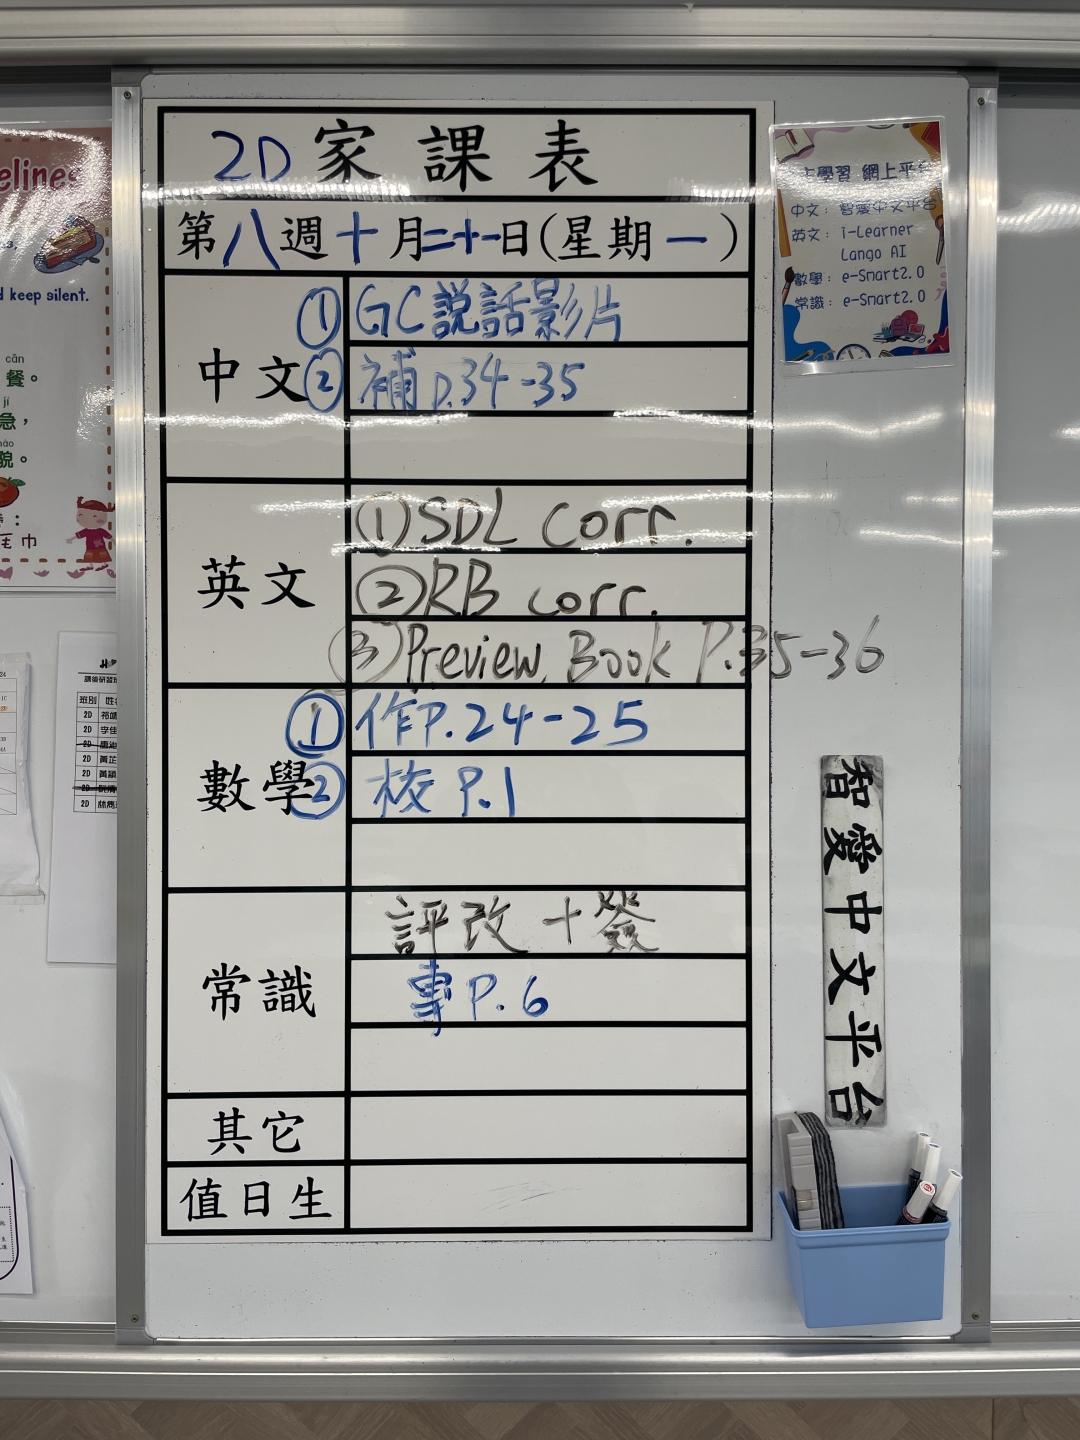 2D 家課表
第八週十月二十一日(星期一)
中文
① GC說話影片
② 補 p.34-35
英文
① SDL corr.
② RB corr.
③ Preview Book P.35-36
數學
① 作P.24-25
② 校 P.1
常識
評改+簽
專 P.6
其它
值日生
學習 網上平台
中文: 智愛中文平台
英文: i-Learner
Lango AI
數學: e-Smart2.0
常識: e-Smart2.0
智愛中文平台
elines
d keep silent.
cān
餐。
jí
急,
貌。
毛巾
班別
2D
2D
2D
2D
2D
2D
2D